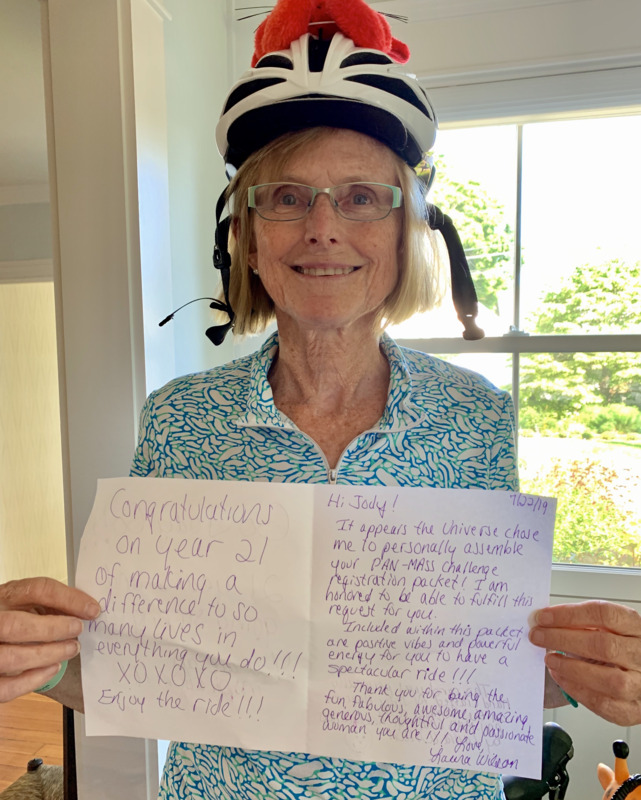 Congratulations
on year 21
of making a
difference to so
many lives in
everything you do!!!
XOXOXO
Enjoy the ride!!!
7/22/19
Hi Jody!
It appears the Universe chose
me to personally assemble
your PAN-MASS challenge
registration packet! I am
honored to be able to fulfill this
request for you.
Included within this packet
are positive vibes and powerful
energy for you to have a
spectacular ride!!!
Thank you for being the
fun, fabulous, awesome, amazing,
generous, thoughtful and passionate
woman you are!!! Love,
Laura Wilson